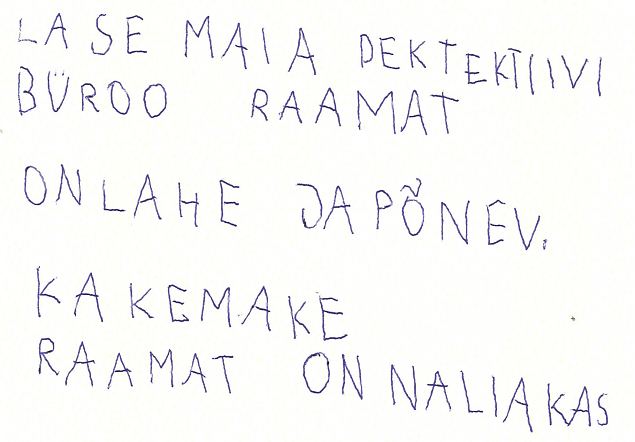 LASE MAIA DEKTEKTIIVI
BÜROO RAAMAT
ON LAHE JA PÕNEV.
KAKEMAKE
RAAMAT ON NALIAKAS